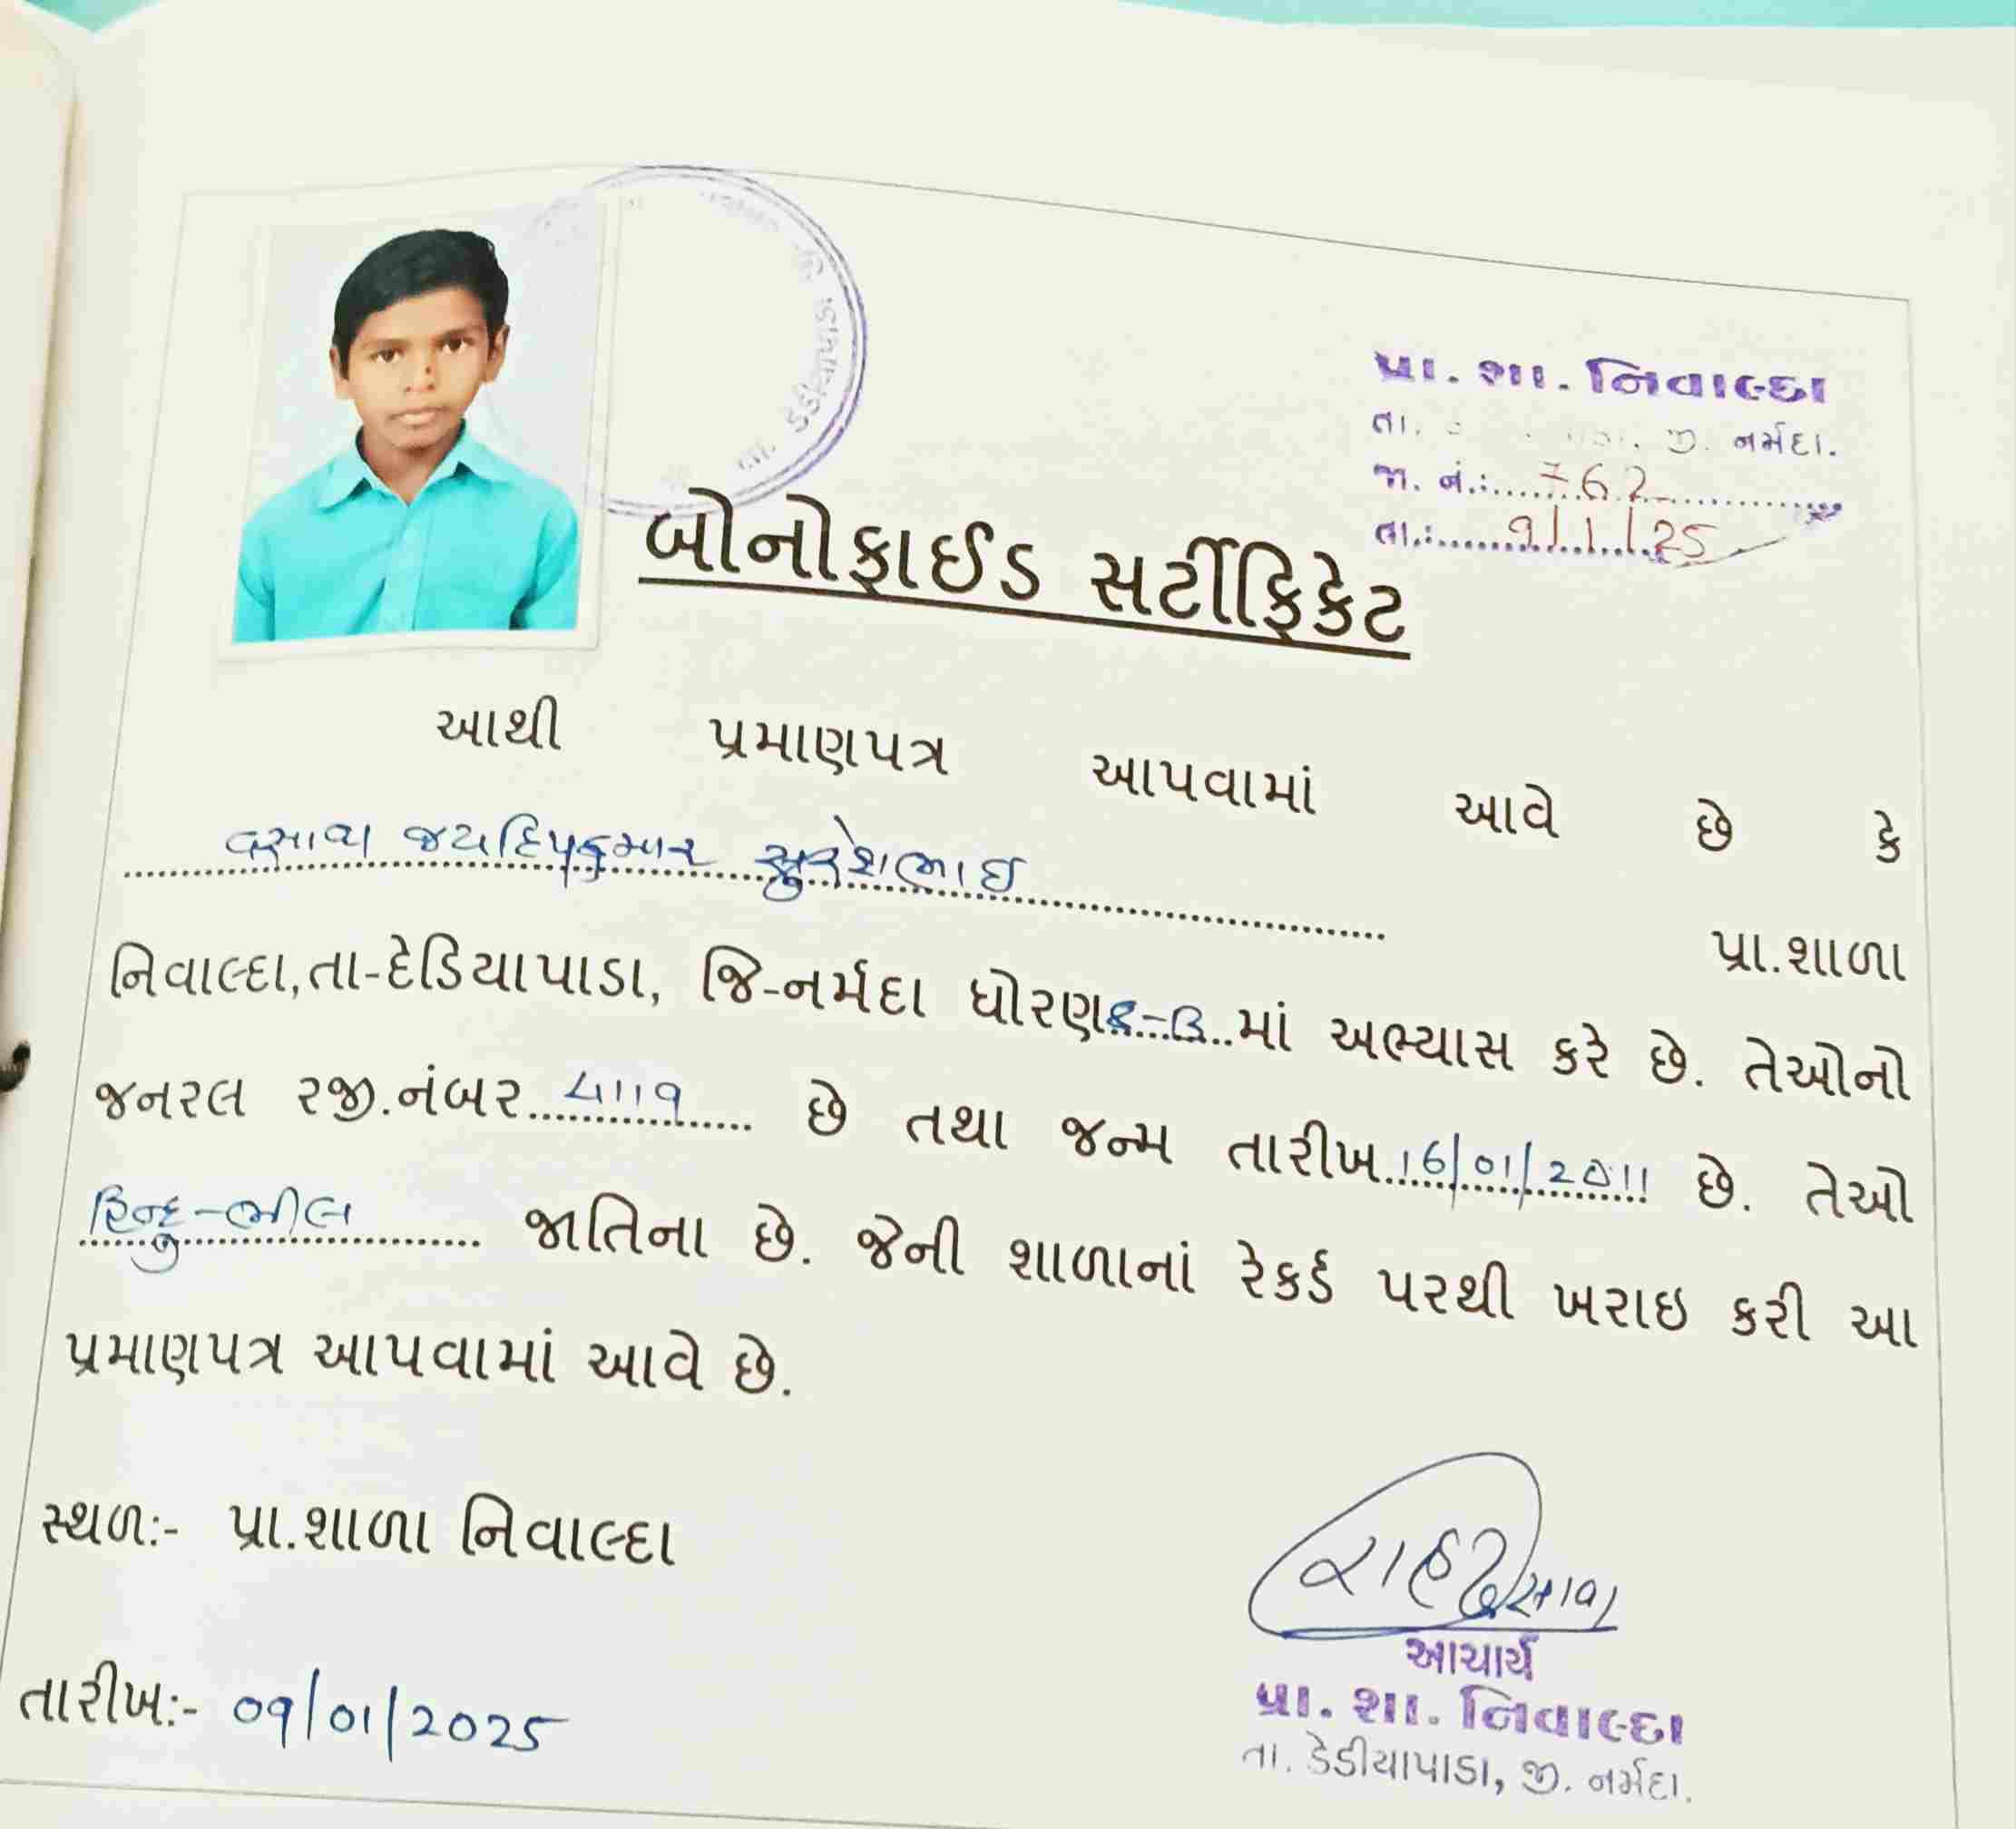 પ્રા. શા. નિવાલ્દા
તા. જી. નર્મદા.
જા. નં.:......762..............
તા.:........9/1/25
તા. ડેડીયાપાડા જિ.
બોનોફાઈડ સર્ટીફિકેટ
આથી પ્રમાણપત્ર આપવામાં આવે છે કે
વસાવા જયદિપકુમાર સુરેશભાઈ પ્રા.શાળા
નિવાલ્દા,તા-દેડિયાપાડા, જિ-નર્મદા ધોરણ માં અભ્યાસ કરે છે. તેઓનો
જનરલ રજી.નંબર છે તથા જન્મ તારીખ..16/01/2011 છે. તેઓ
હિન્દુ-ભીલ જાતિના છે. જેની શાળાનાં રેકર્ડ પરથી ખરાઇ કરી આ
પ્રમાણપત્ર આપવામાં આવે છે.
સ્થળ:- પ્રા.શાળા નિવાલ્દા
તારીખ:- 09/01/2025
આચાર્ય
પ્રા. શા. નિવાલ્દા
તા. ડેડીયાપાડા, જી. નર્મદા.